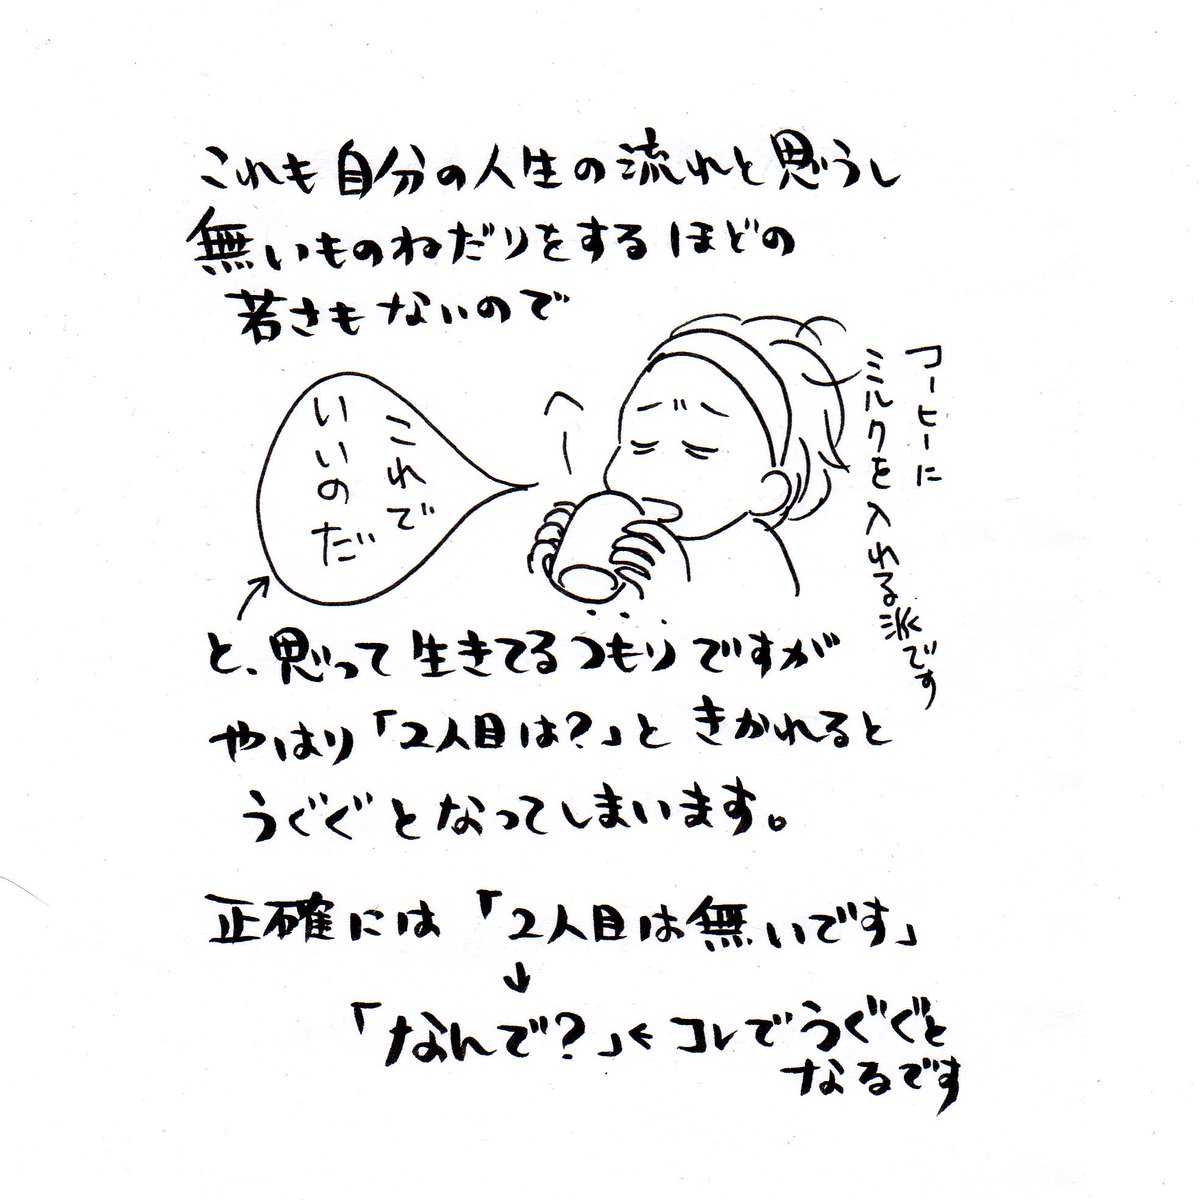 これも自分の人生の流れと思うし
無いものねだりをするほどの
若さもないので
コーヒーに
ミルクを入れる派です
これで
いいのだ
と、思って生きてるつもりですが
やはり「2人目は?」ときかれると
うぐぐとなってしまいます。
正確には「2人目は無いです」
↓
「なんで?」← コレでうぐぐと
なるです